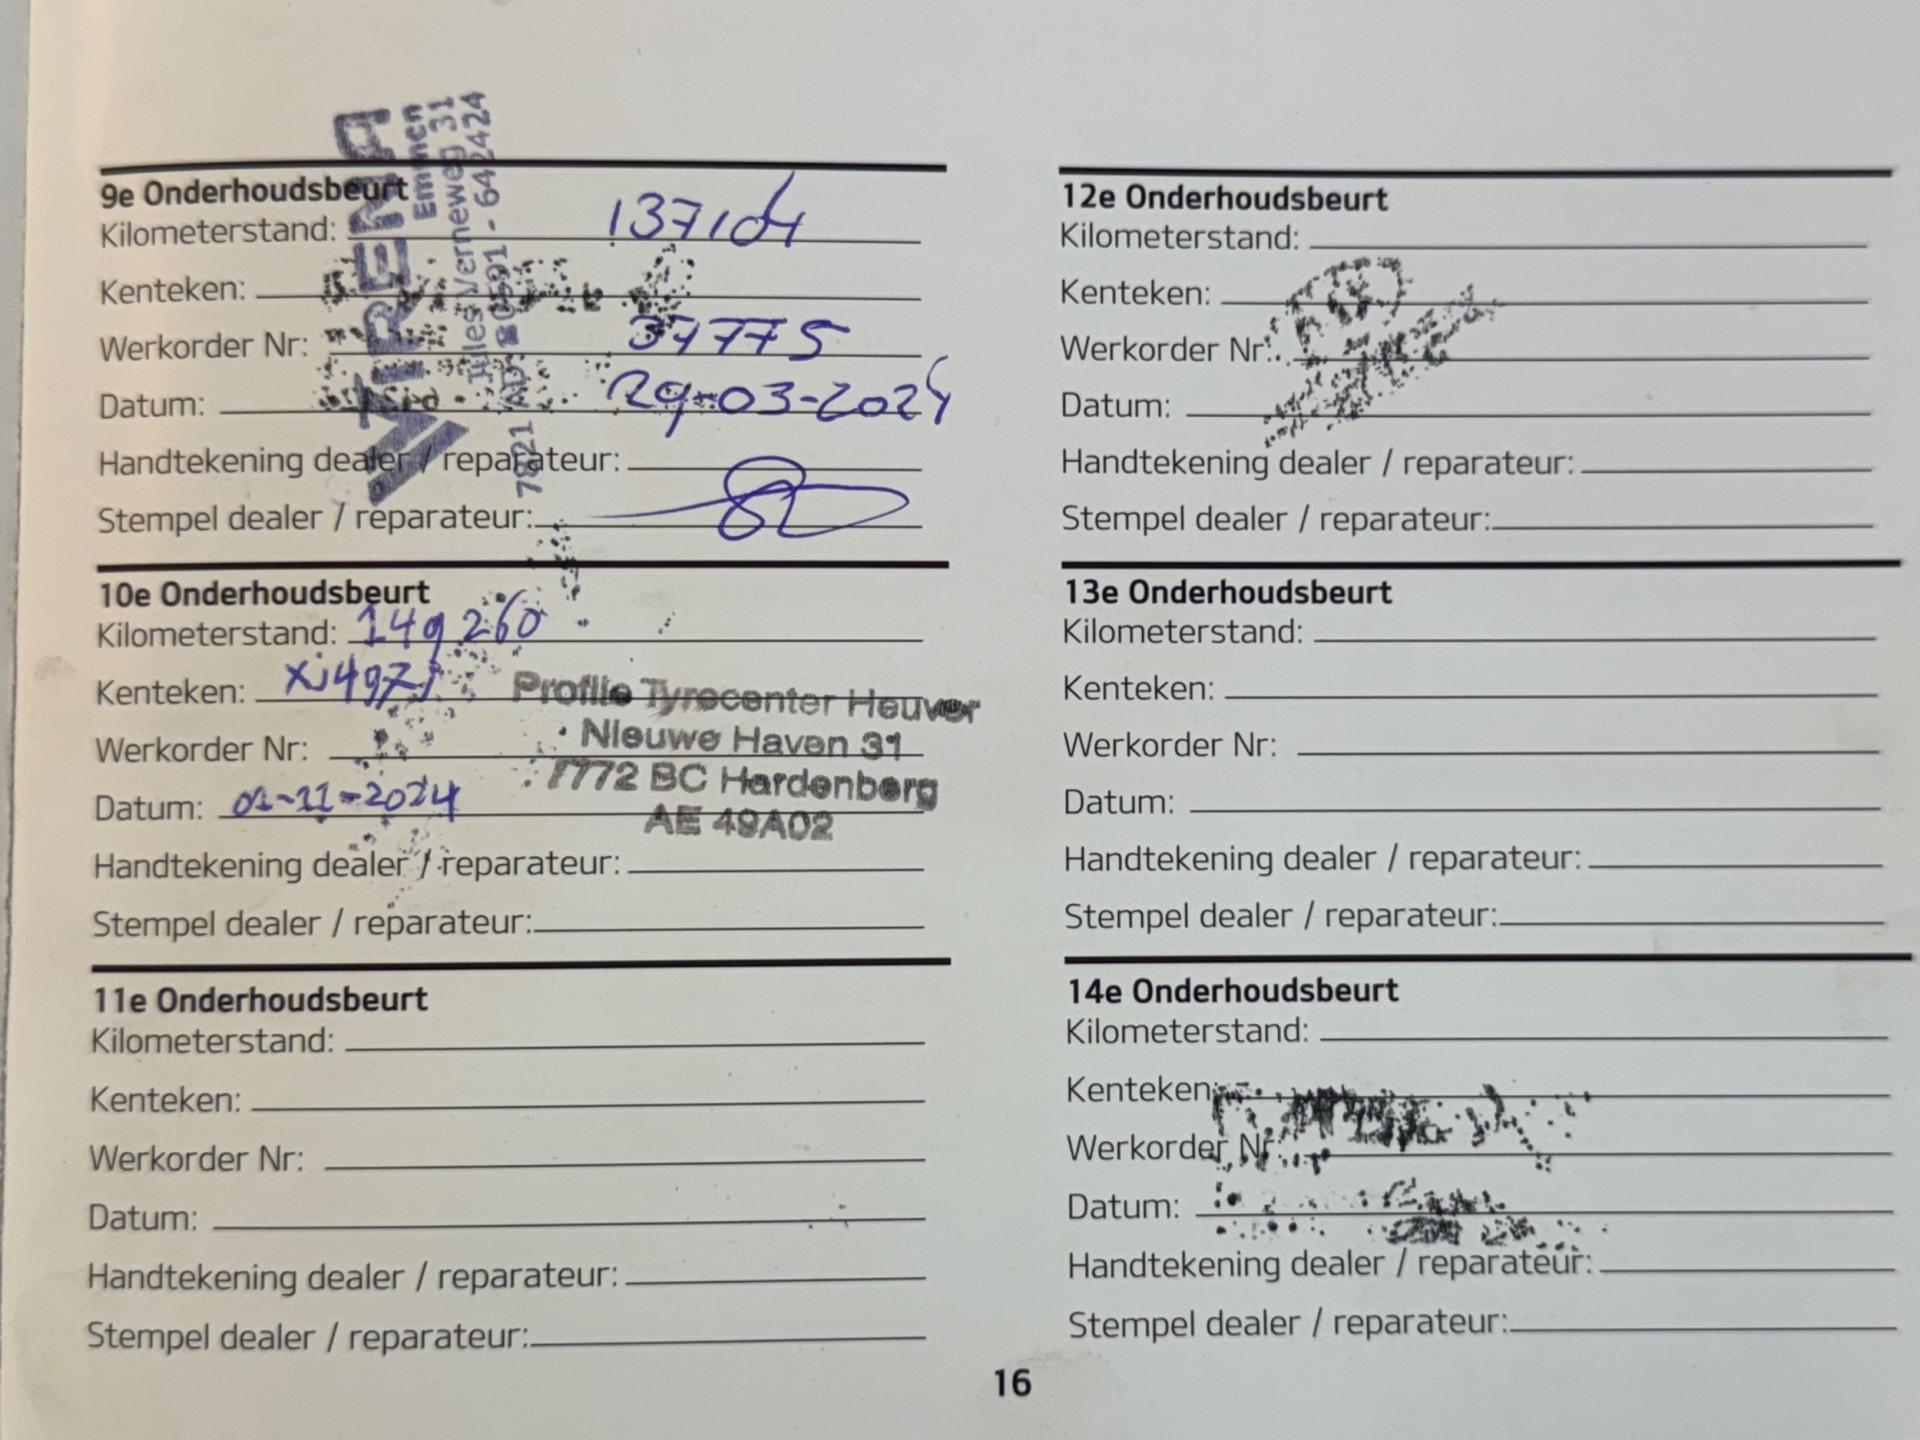 9e Onderhoudsbeurt
Kilometerstand: 137104
Kenteken:
Werkorder Nr: 37775
Datum: 29-03-2024
Handtekening dealer / reparateur:
Stempel dealer / reparateur:
Emmen
Jules Verneweg 31
7821 AD - 0591 - 642424
10e Onderhoudsbeurt
Kilometerstand: 149260
Kenteken: XJ497J
Werkorder Nr:
Datum: 01-11-2024
Handtekening dealer / reparateur:
Stempel dealer / reparateur:
Profile Tyrecenter Heuver
Nieuwe Haven 31
7772 BC Hardenberg
AE 49A02
11e Onderhoudsbeurt
Kilometerstand:
Kenteken:
Werkorder Nr:
Datum:
Handtekening dealer / reparateur:
Stempel dealer / reparateur:
12e Onderhoudsbeurt
Kilometerstand:
Kenteken:
Werkorder Nr:
Datum:
Handtekening dealer / reparateur:
Stempel dealer / reparateur:
13e Onderhoudsbeurt
Kilometerstand:
Kenteken:
Werkorder Nr:
Datum:
Handtekening dealer / reparateur:
Stempel dealer / reparateur:
14e Onderhoudsbeurt
Kilometerstand:
Kenteken:
Werkorder Nr:
Datum:
Handtekening dealer / reparateur:
Stempel dealer / reparateur:
16